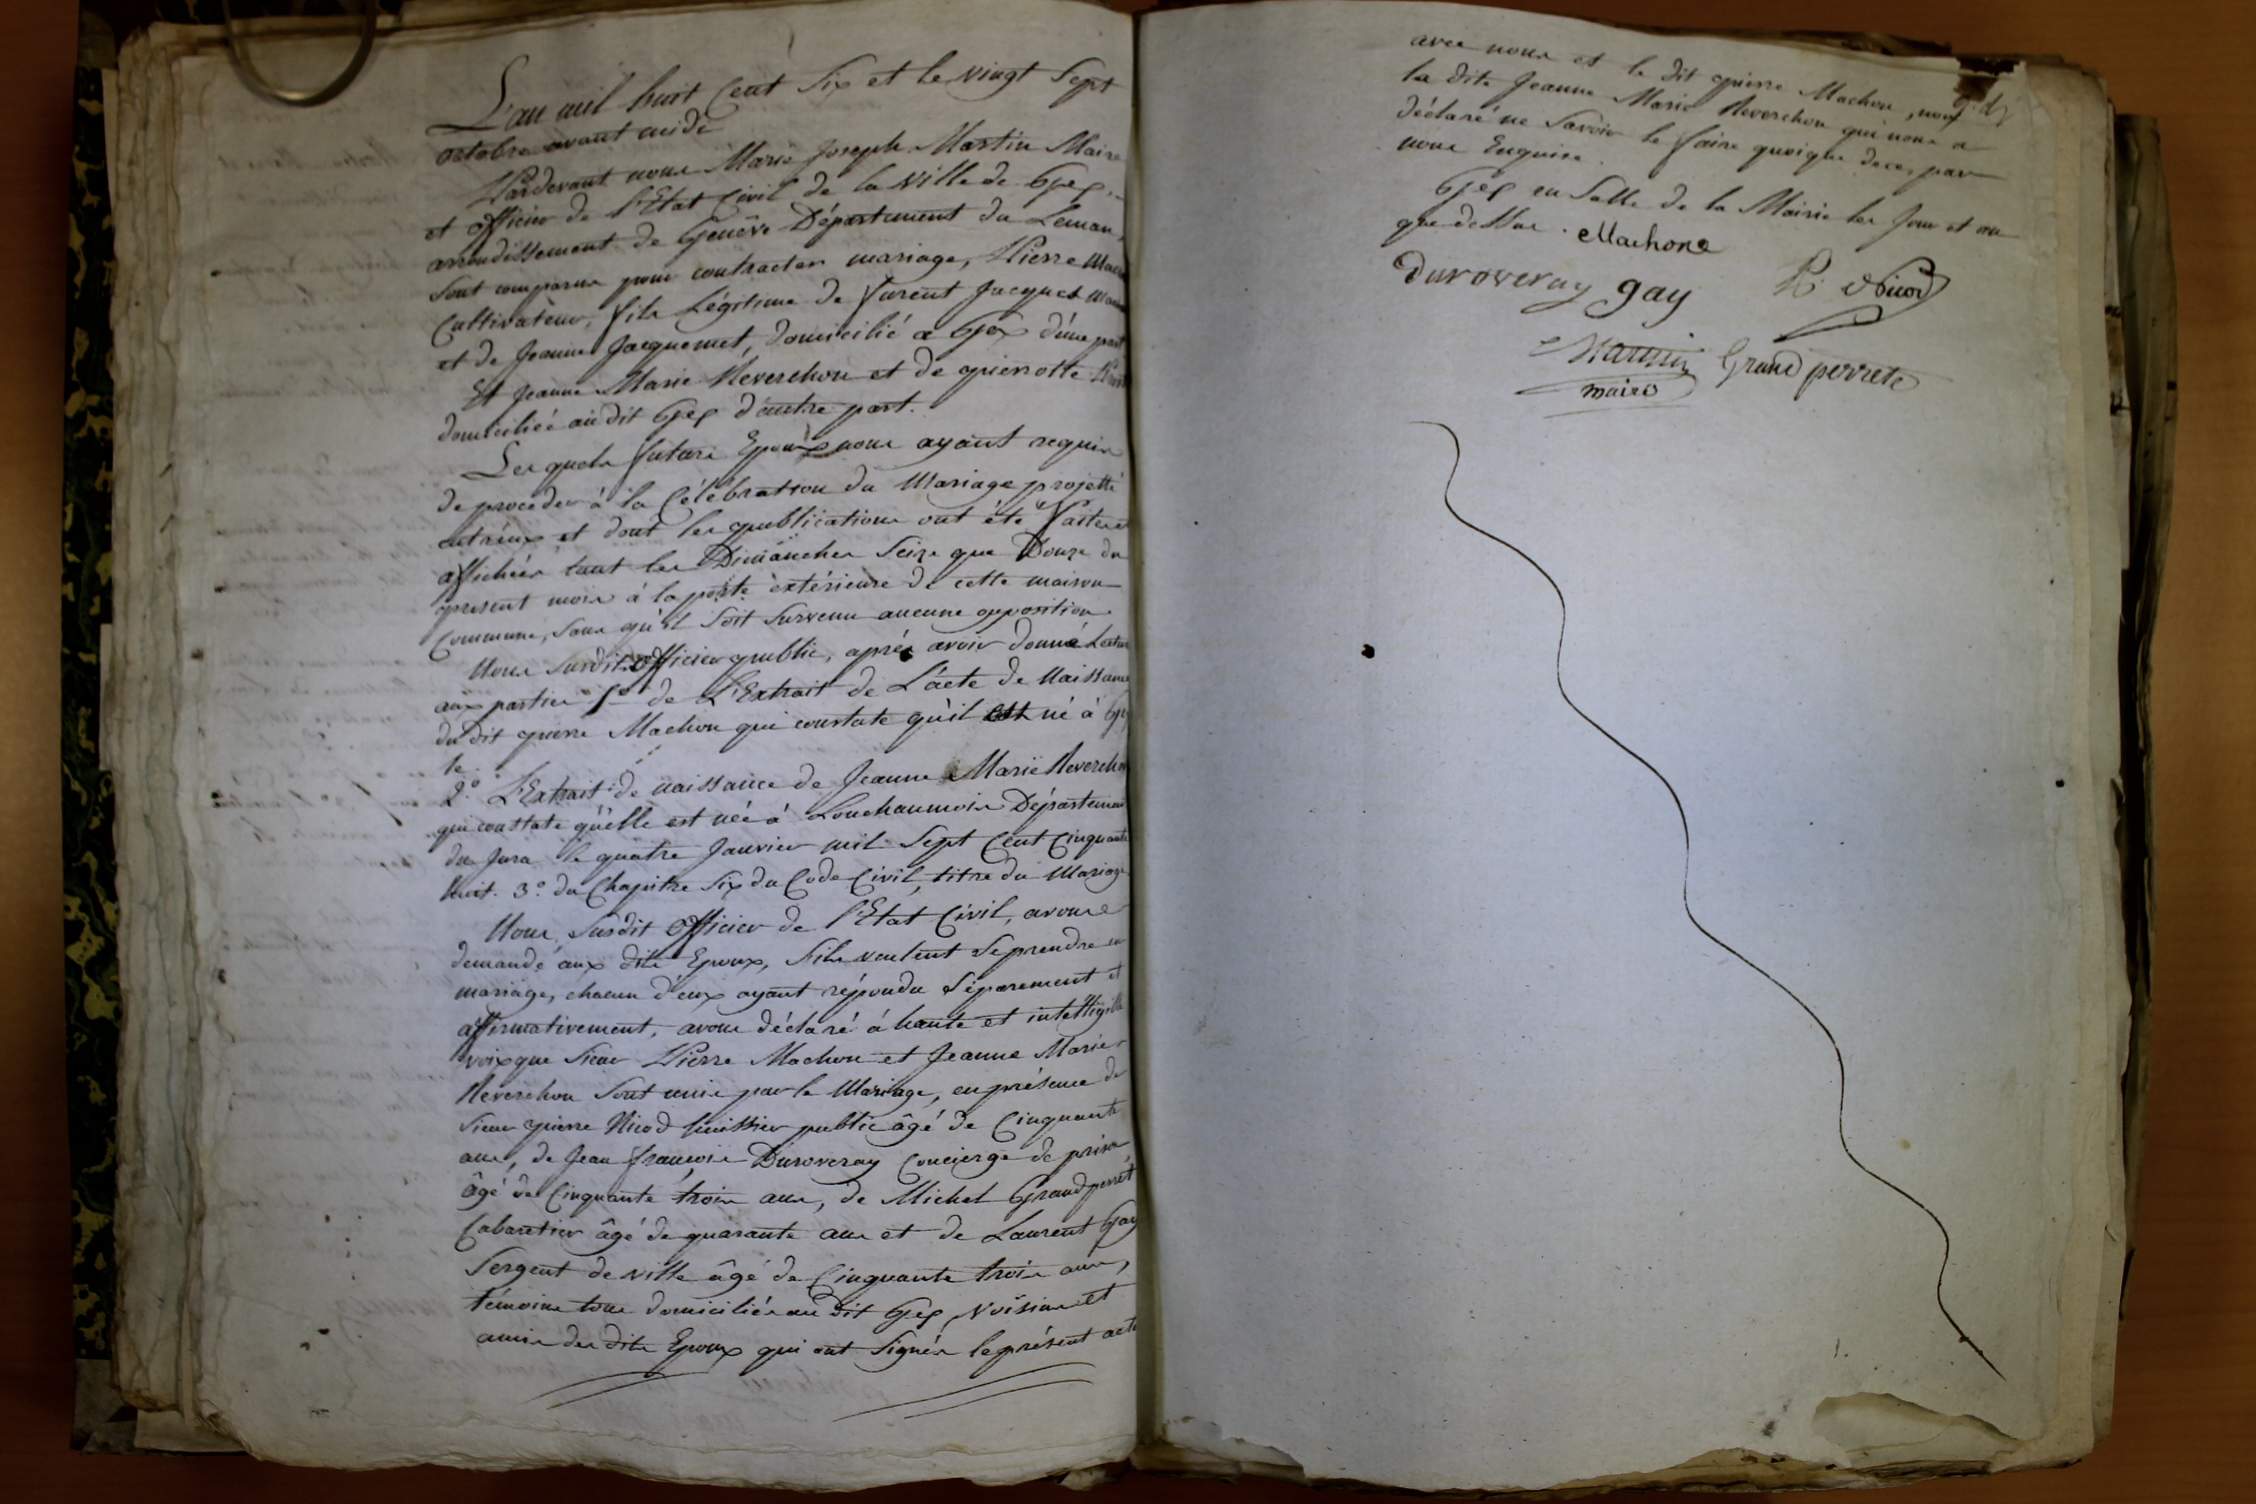 L'an mil huit Cent Six et le vingt Sept
octobre avant midi
Pardevant nous Marie Joseph Martin Maire
et officier de l'Etat Civil de la Ville de Gex,
arrondissement de Genêve Département du Leman,
Sont comparus pour contracter mariage, Pierre
Cultivateur, fils Légitime de furent Jacques
et de Jeanne Jacquemet, domicilié a Gex d'une part
Et Jeanne Marie Reverchon et de pierrotte
domiciliée audit Gex d'autre part.
Lesquels futurs Epoux nous ayant requis
de proceder à la Célébration du Mariage projetté
entr'eux et dont les publications ont été faites et
affichées tant les Dimanches Seize que Douze du
present mois à la porte extérieure de cette maison
Commune, sans qu'il soit survenu aucune opposition
Nous Susdit officier public, après avoir donné Lecture
aux parties 1º de L'Extrait de L'acte de Naissance
du dit pierre Machon qui constate qu'il est né à
le
2º L'Extrait de naissance de Jeanne Marie Reverchon
qui constate qu'elle est née à Lonchaumois Département
du Jura le quatre Janvier mil Sept Cent Cinquante
huit. 3º du Chapitre Six du Code Civil, titre du Mariage
Nous Susdit officier de l'Etat Civil, avons
demandé aux dits Epoux, S'ils veulent se prendre en
mariage, chacun d'eux ayant répondu Séparement et
affirmativement, avons déclaré à haute et intelligible
voix que Sieur Pierre Machon et Jeanne Marie
Reverchon Sont unis par le Mariage, en présence de
Sieur pierre Nicod huissier public âgé de Cinquante
ans, de Jean françois Duroveray Concierge de prison
âgé de Cinquante trois ans, de Michel Grandperret
Cabaretier âgé de quarante ans et de Laurent Gay
Sergent de ville âgé de Cinquante trois ans,
témoins tous domiciliés au dit Gex, Voisins et
amis des dits Epoux qui ont Signés le présent acte
avec nous et le dit pierre Machon, non
la dite Jeanne Marie Reverchon qui nous a
déclaré ne Savoir le faire quoique de ce, par
nous Enquise.
Gex en Salle de la Mairie les Jour et an
que dessus. Machon
Duroveray gay P. Nicod
Martin Grand perret
maire